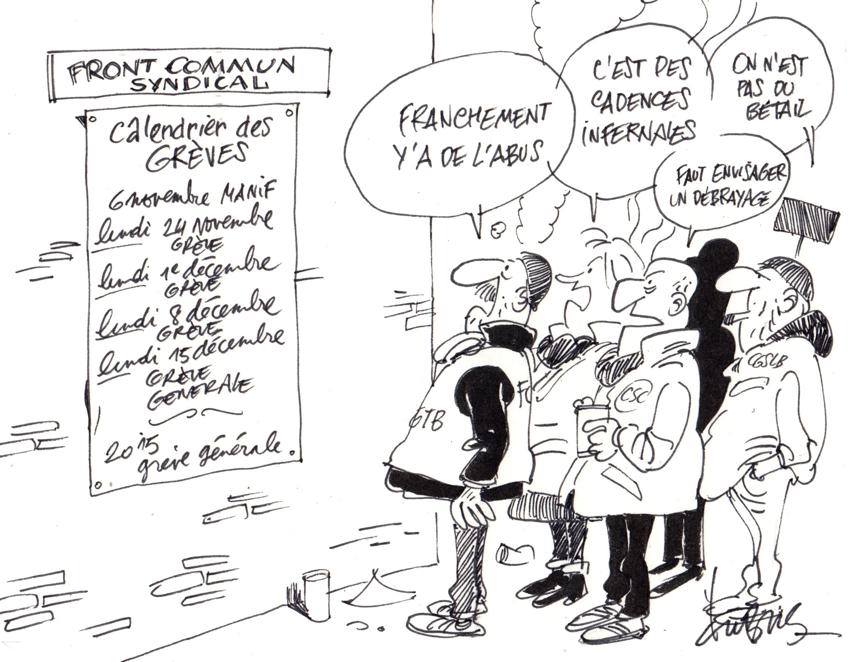 FRONT COMMUN
SYNDICAL
Calendrier des
GRÈVES
6 novembre MANIF
lundi 24 Novembre
GRÈVE
lundi 1e décembre
GRÈVE
lundi 8 décembre
GRÈVE
lundi 15 décembre
GRÈVE
GENERALE
2015
grève générale
FRANCHEMENT
Y'A DE L'ABUS
C'EST DES
CADENCES
INFERNALES
ON N'EST
PAS DU
BÉTAIL
FAUT ENVISAGER
UN DÉBRAYAGE
GTB
CSC
CGSLB